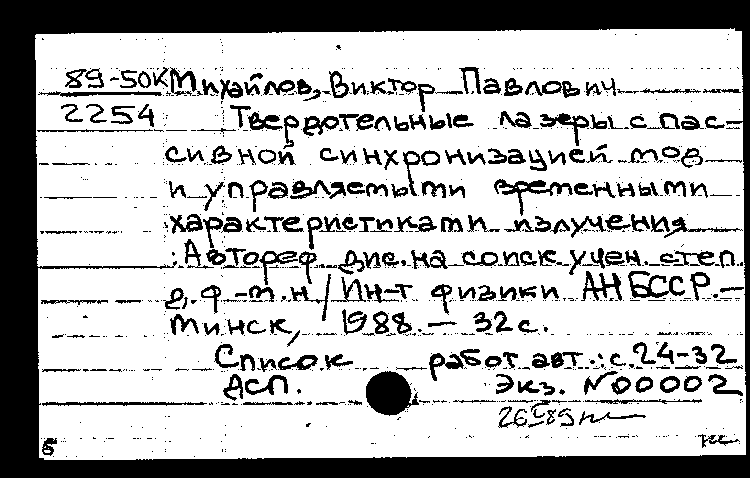 89-50К Михайлов, Виктор Павлович
2254 Твердотельные лазеры с пас-
сивной синхронизацией мод
и управляемыми временными
характеристиками излучения
: Автореф дис. на соиск учен. степ.
д. ф.-м. н / Ин-т физики АН БССР. —
Минск, 1988. — 32 с.
Список работ авт.: с. 24-32
ДСП. Экз. №00002
б